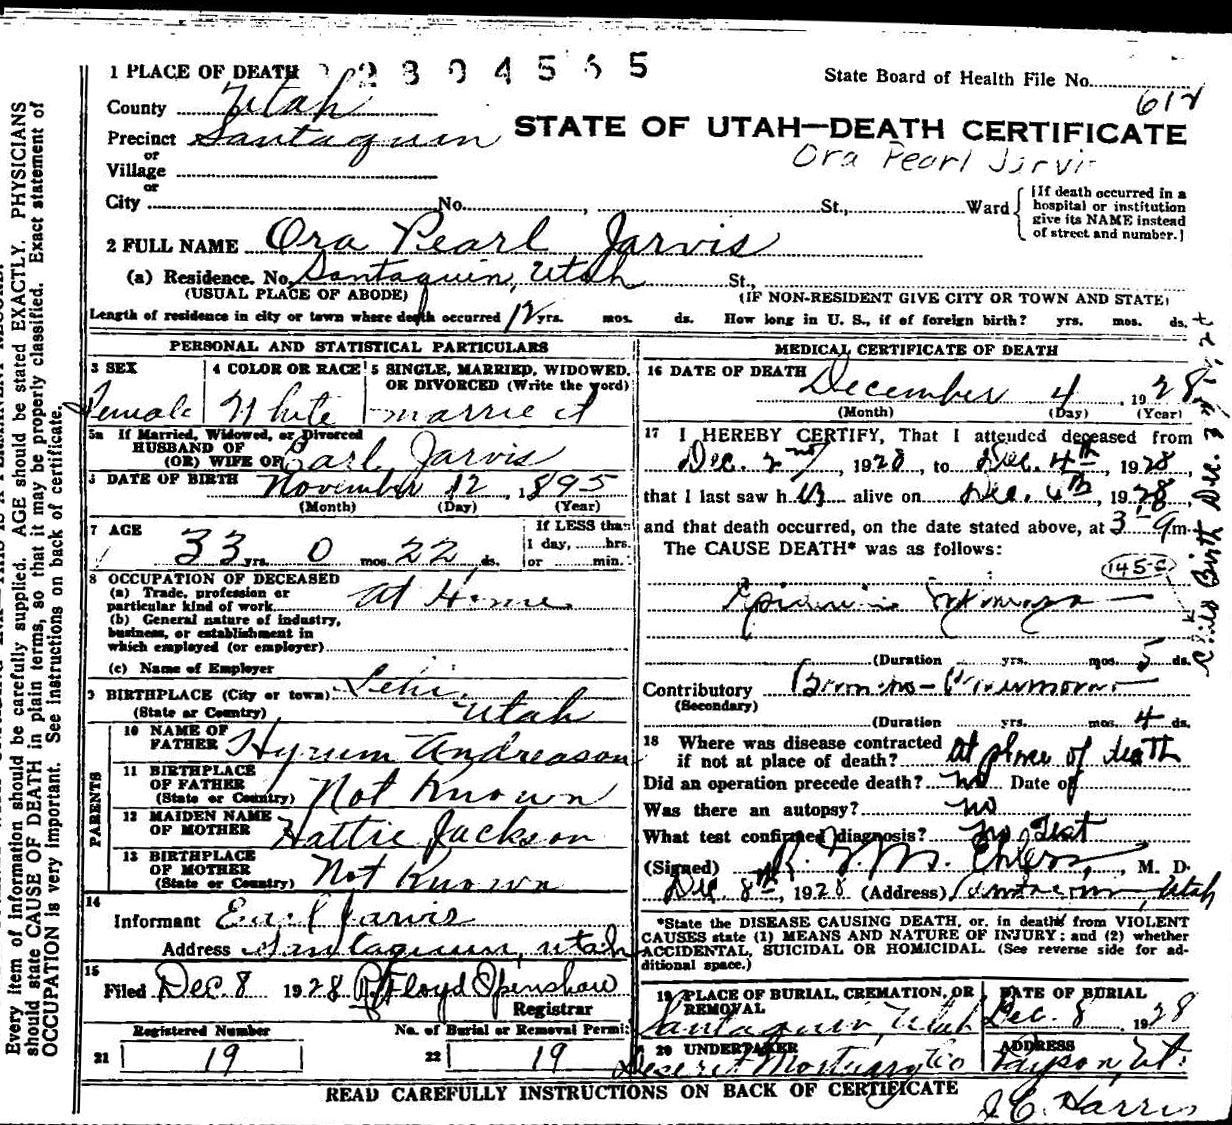 1 PLACE OF DEATH 2804565
State Board of Health File No. 614
County Utah
Precinct Santaquin
STATE OF UTAH—DEATH CERTIFICATE
or
Ora Pearl Jarvis
Village
or
City No. , St., Ward
[If death occurred in a
hospital or institution
give its NAME instead
of street and number.]
2 FULL NAME Ora Pearl Jarvis
(a) Residence. No. Santaquin, Utah St.,
(USUAL PLACE OF ABODE)
(IF NON-RESIDENT GIVE CITY OR TOWN AND STATE)
Length of residence in city or town where death occurred 12 yrs. mos. ds. How long in U. S., if of foreign birth? yrs. mos. ds.
PERSONAL AND STATISTICAL PARTICULARS
3 SEX
Female
4 COLOR OR RACE
White
5 SINGLE, MARRIED, WIDOWED,
OR DIVORCED (Write the word)
married
5a If Married, Widowed, or Divorced
HUSBAND OF
(OR) WIFE OF Earl Jarvis
DATE OF BIRTH November 12, 1895
(Month) (Day) (Year)
7 AGE
33 yrs. 0 mos. 22 ds.
If LESS than
1 day, hrs.
or min.
8 OCCUPATION OF DECEASED
(a) Trade, profession or
particular kind of work At Home
(b) General nature of industry,
business, or establishment in
which employed (or employer)
(c) Name of Employer
9 BIRTHPLACE (City or town) Lehi
(State or Country) Utah
PARENTS
10 NAME OF
FATHER Hyrum Andreason
11 BIRTHPLACE
OF FATHER
(State or Country) Not Known
12 MAIDEN NAME
OF MOTHER Hattie Jackson
13 BIRTHPLACE
OF MOTHER
(State or Country) Not Known
14
Informant Earl Jarvis
Address Santaquin, Utah
15
Filed Dec. 8 1928 Floyd Openshaw
Registrar
Registered Number
21 19
No. of Burial or Removal Permit
22 19
MEDICAL CERTIFICATE OF DEATH
16 DATE OF DEATH
December 4, 1928
(Month) (Day) (Year)
17 I HEREBY CERTIFY, That I attended deceased from
Dec. 2nd, 1928, to Dec. 4th, 1928,
that I last saw her alive on Dec. 4th, 1928,
and that death occurred, on the date stated above, at 3 m.
The CAUSE DEATH* was as follows:
145-c
(Duration yrs. mos. 5 ds.
Contributory Broncho-Pneumonia
(Secondary)
(Duration yrs. mos. 4 ds.
18 Where was disease contracted
if not at place of death? at place of death
Did an operation precede death? no Date of
Was there an autopsy? no
What test confirmed diagnosis? no Test
(Signed) Ehlers, M. D.
Dec. 8th, 1928 (Address) Santaquin, Utah
*State the DISEASE CAUSING DEATH, or, in deaths from VIOLENT
CAUSES state (1) MEANS AND NATURE OF INJURY; and (2) whether
ACCIDENTAL, SUICIDAL OR HOMICIDAL. (See reverse side for ad-
ditional space.)
19 PLACE OF BURIAL, CREMATION, OR
REMOVAL
Santaquin, Utah
DATE OF BURIAL
Dec. 8 1928
20 UNDERTAKER
Deseret Mortuary Co
ADDRESS
Payson, Ut.
READ CAREFULLY INSTRUCTIONS ON BACK OF CERTIFICATE
J. E. Harris
Child Birth Dec. 3
Every item of information should be carefully supplied. AGE should be stated EXACTLY. PHYSICIANS
should state CAUSE OF DEATH in plain terms, so that it may be properly classified. Exact statement of
OCCUPATION is very important. See instructions on back of certificate.